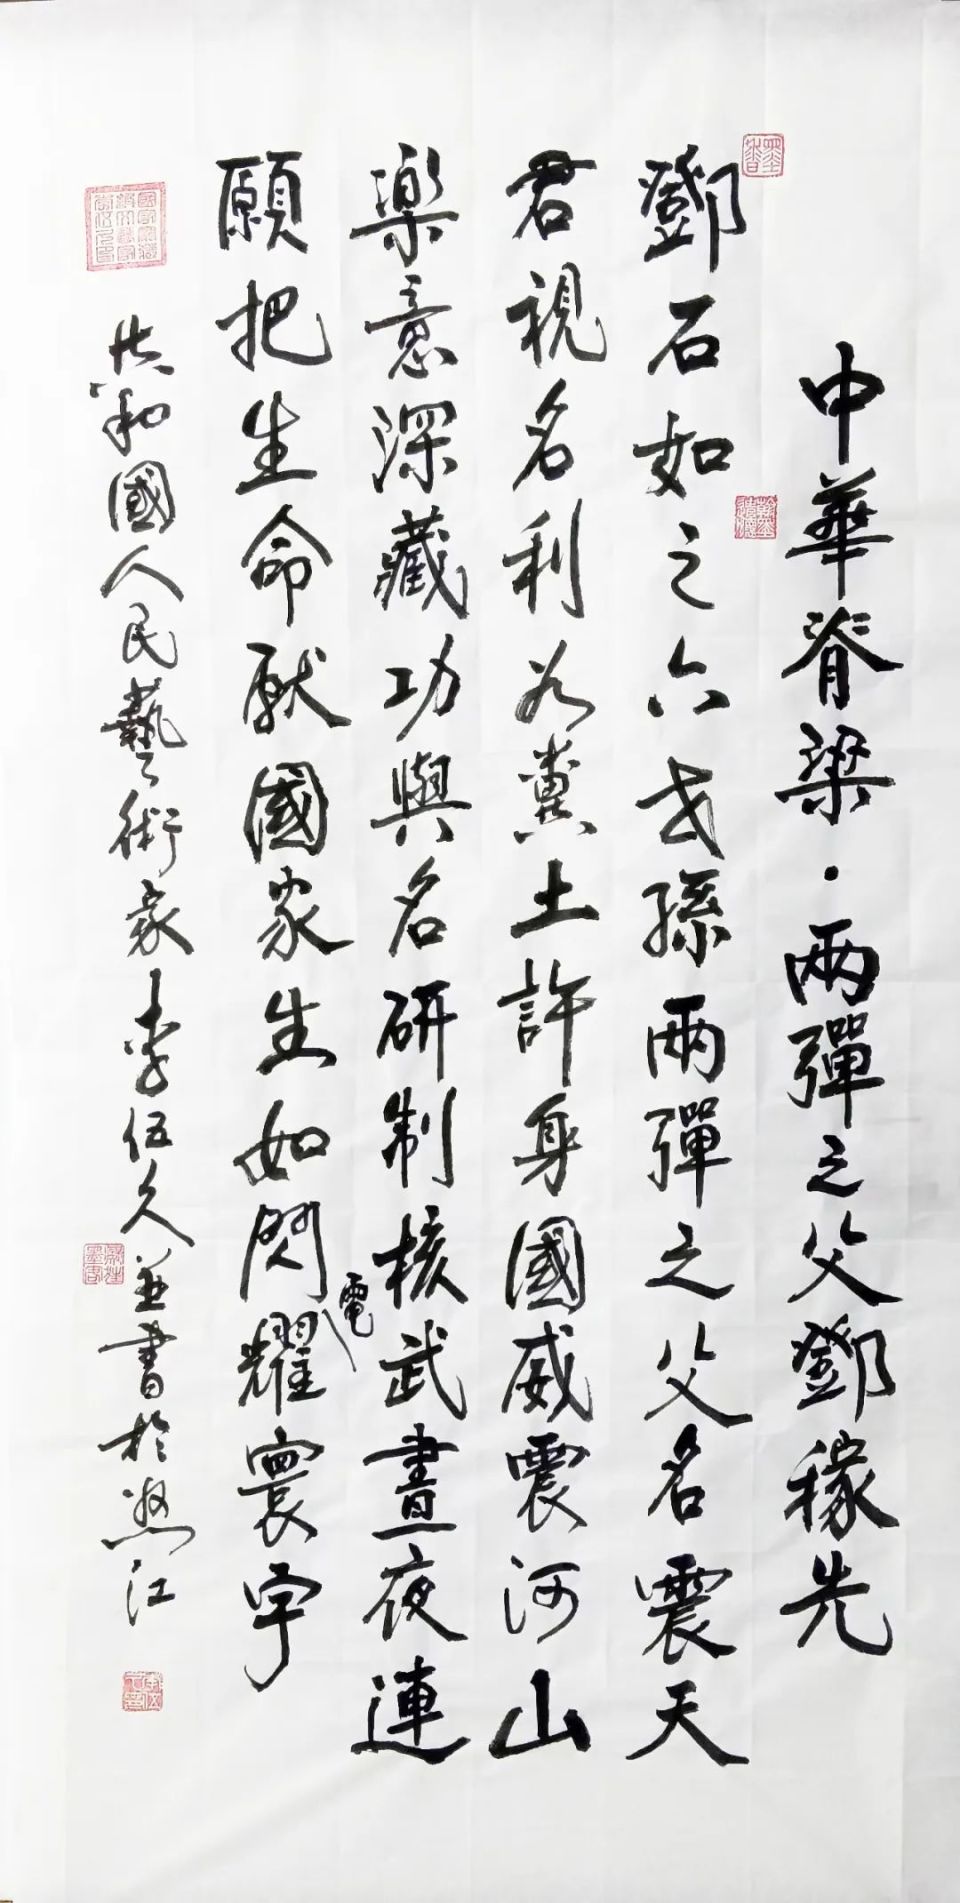 中華脊梁·兩彈之父鄧稼先
鄧石如之六世孫兩彈之父名震天
君視名利如糞土許身國威震河山
樂意深藏功與名研制核武晝夜連
願把生命獻國家生如閃電耀寰宇
共和國人民藝術家李伍久並書於怒江